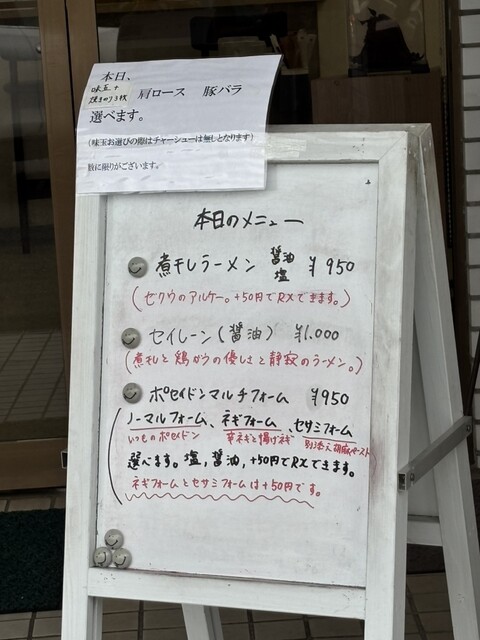 本日、
味玉+
焼きのり3枚 肩ロース 豚バラ
選べます。
(味玉お選びの際はチャーシューは無しとなります)
数に限りがございます。
本日のメニュー
煮干しラーメン 醤油 塩 ¥950
(ゼクウのアルケー。+50円でRXできます。)
セイレーン(醤油) ¥1.000
(煮干しと鶏ガラの優しさと静寂のラーメン。)
ポセイドンマルチフォーム ¥950
ノーマルフォーム、ネギフォーム、セサミフォーム
いつものポセイドン 芽ネギと揚げネギ 別添え胡麻ペースト
選べます。塩,醤油,+50円でRXできます。
ネギフォームとセサミフォームは+50円です。